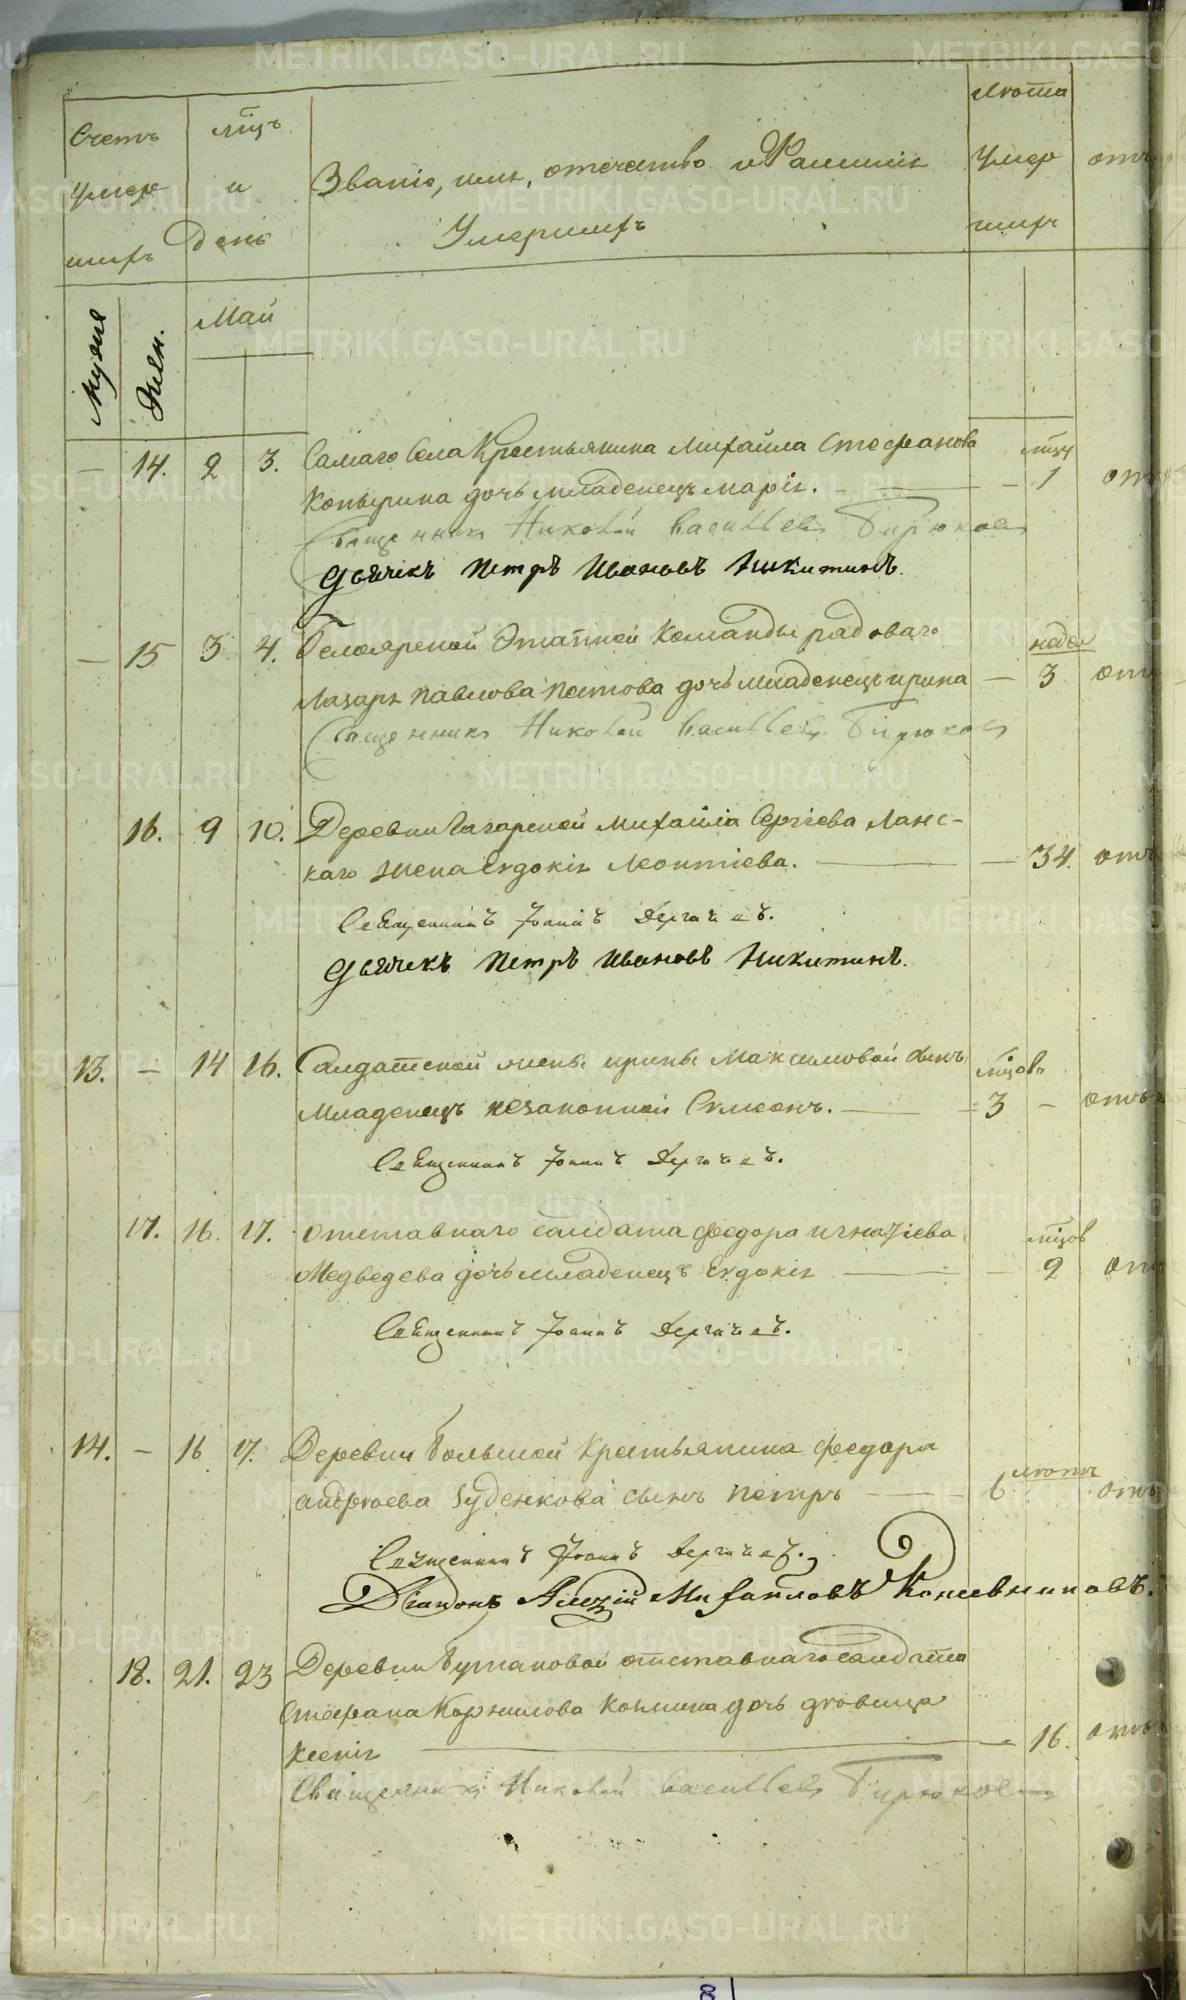 Счетъ умер шихъ
мцъ и День
Званіе, имя, отечество и Фамилія
Умершихъ
Лѣта Умер шихъ
Мужес
Жен.
Май
— 14. 2 3. Самаго Села Крестьянина Михайла Стефанова мцъ
Копырина дочь младенецъ марія. — 1
Священникъ Николай Васильевъ Бирюковъ
Дьячекъ Петръ Ивановъ Никитинъ.
— 15 3 4. Белоярской Этапной Команды рядоваго недел
Лазаря Павлова дочь младенецъ ирина — 3
Священникъ Николай Васильевъ Бирюковъ
16. 9 10. Деревни Гагарской Михайла Сергіева Ланс-
каго жена Евдокія Леонтіева. — 34.
Священникъ Іоаннъ Дергачевъ.
Дьячекъ Петръ Ивановъ Никитинъ.
13. — 14 16. Салдатской жены ирины Максимовой сынъ мцовъ
Младенецъ незаконной Симеонъ. — 3 —
Священникъ Іоаннъ Дергачевъ.
17. 16. 17. отставнаго салдата федора игнатіева мцов
Медведева дочь младенецъ Евдокія — 2
Священникъ Іоаннъ Дергачевъ.
14. — 16 17. Деревни Большой Крестьянина федора
андреева сынъ петръ — 6 летъ
Священникъ Іоаннъ Дергачевъ.
Діаконъ Алексій Михайловъ Кожевниковъ.
18. 21. 23 Деревни отставнаго салдата
Стефана Корнилова дочь девица
Ксенія — 16.
Священникъ Николай Васильевъ Бирюковъ
8
METRIKI.GASO-URAL.RU